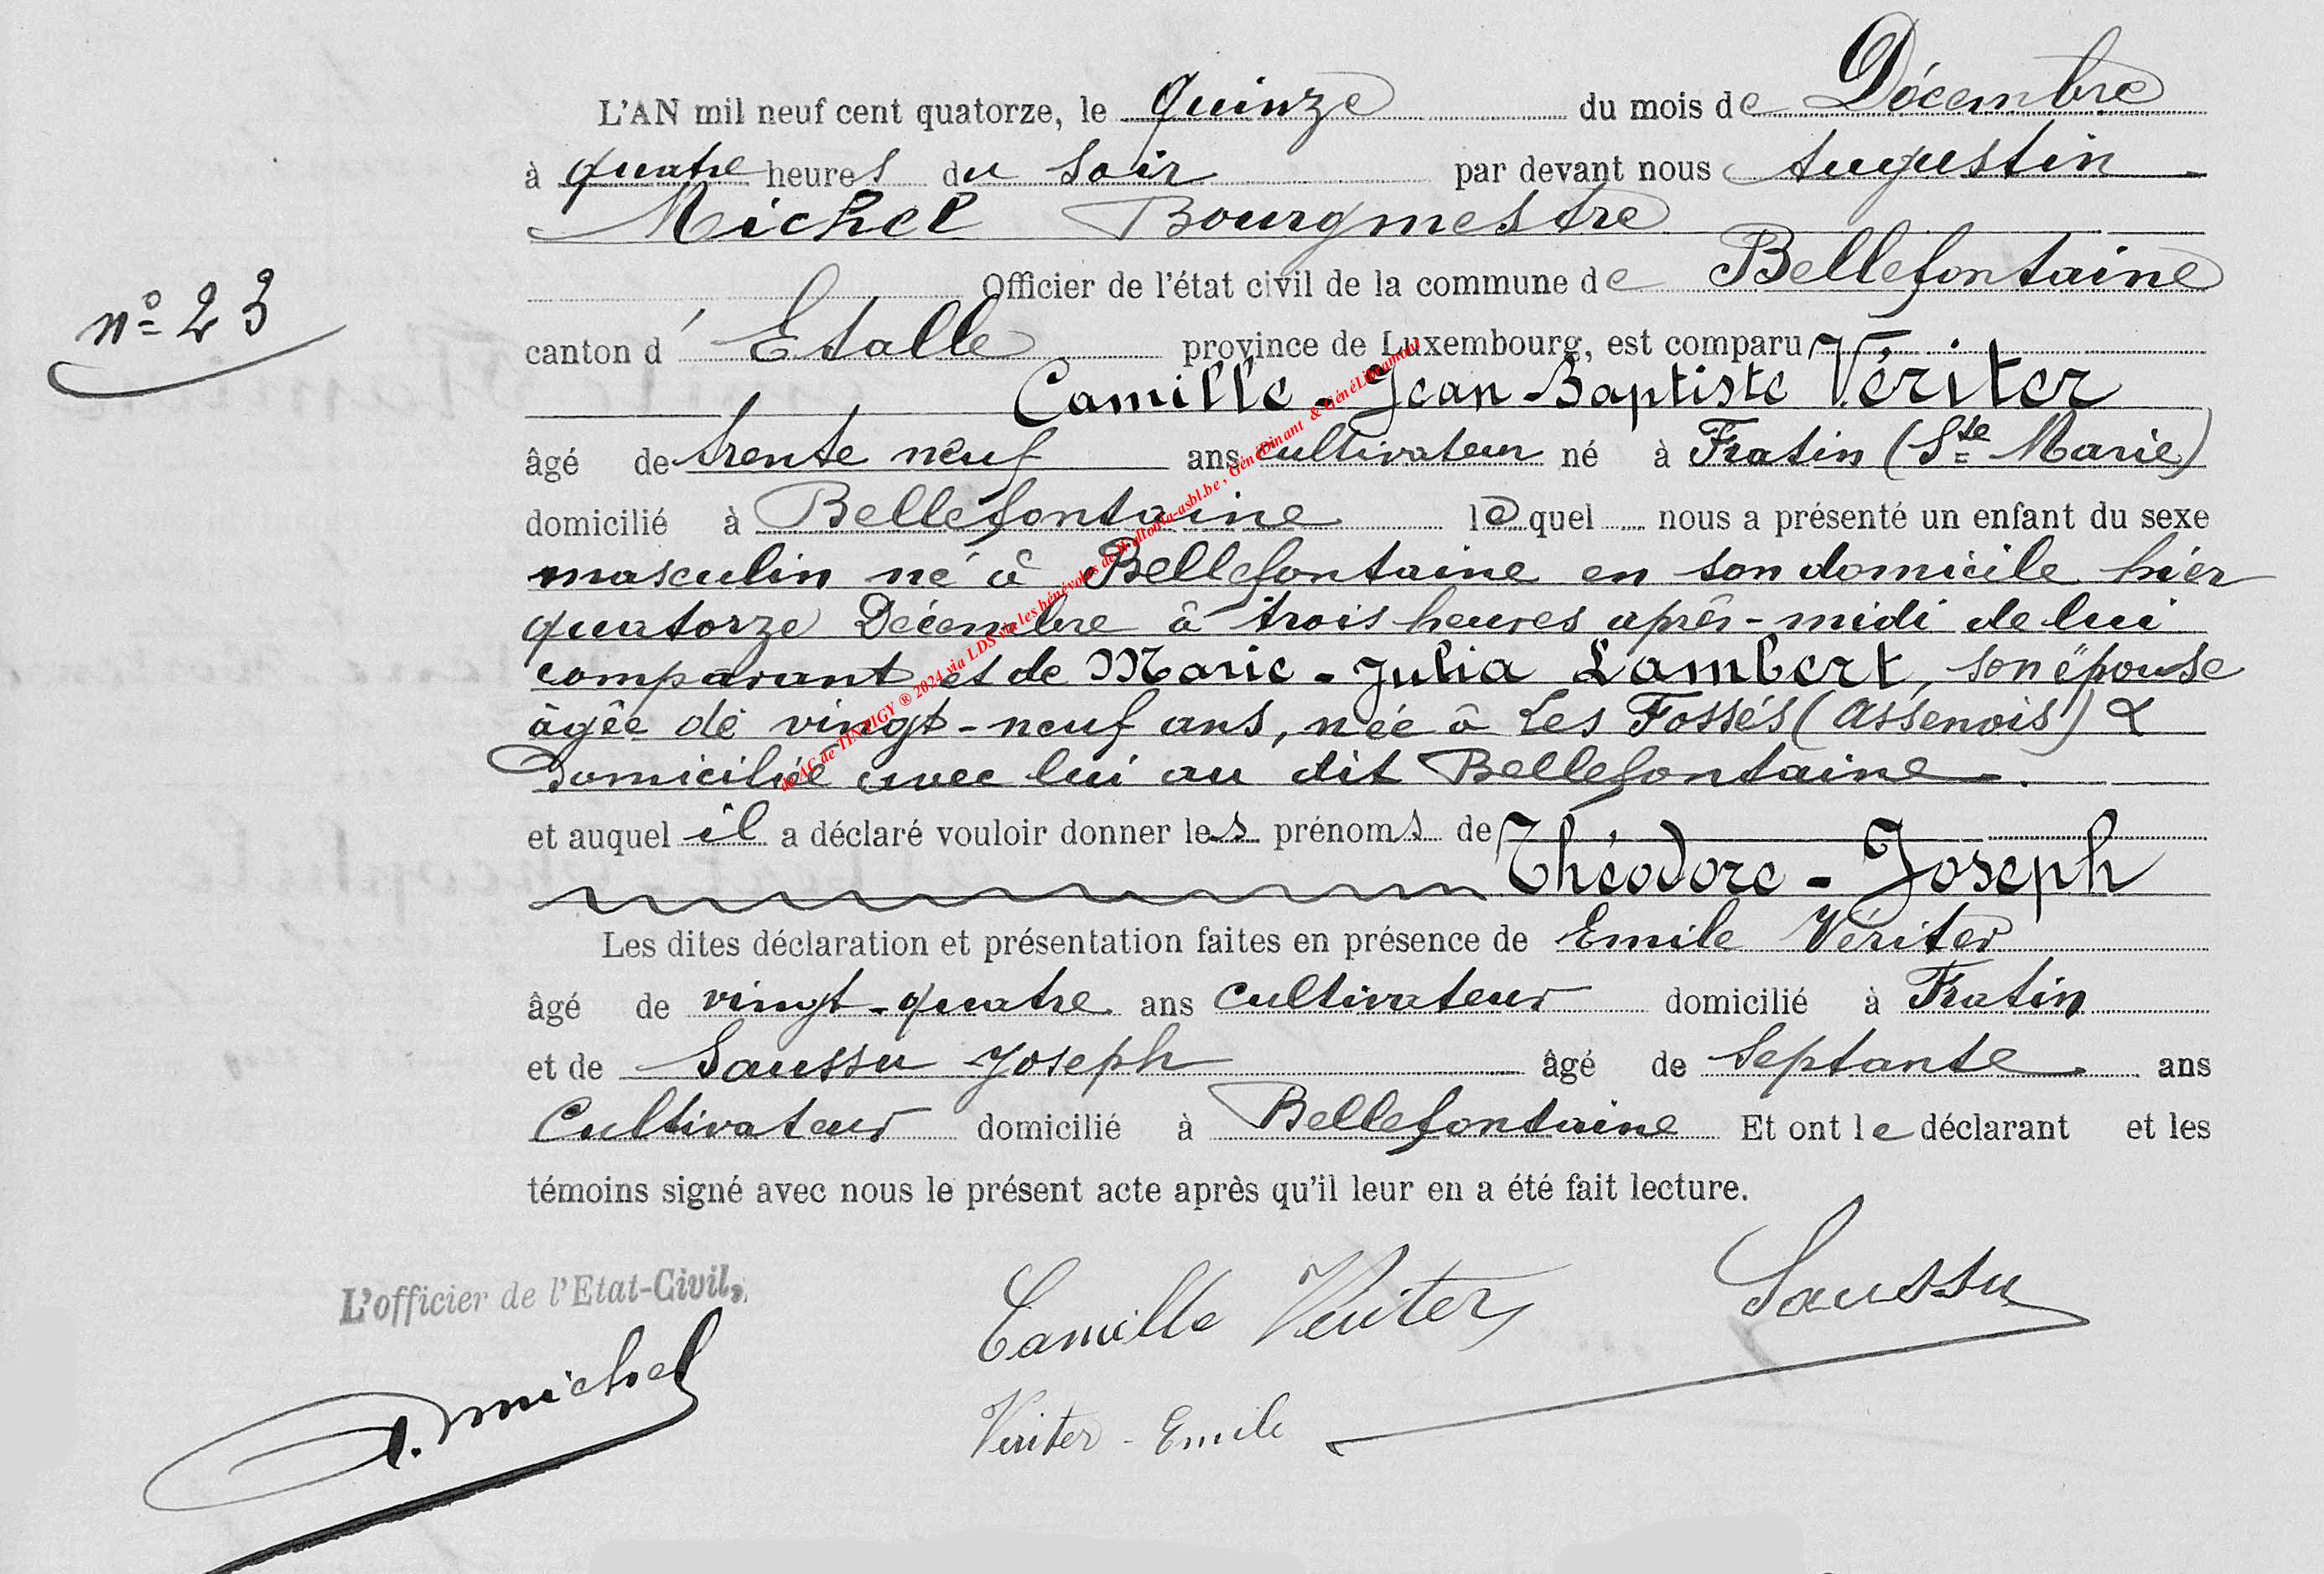 L'AN mil neuf cent quatorze, le quinze du mois de Décembre
à quatre heures du soir par devant nous Augustin
Michel Bourgmestre
Officier de l'état civil de la commune de Bellefontaine
n° 23
canton d'Etalle province de Luxembourg, est comparu Vériter
Camille-Jean-Baptiste Vériter
âgé de trente neuf ans cultivateur né à Fratin (Ste Marie)
domicilié à Bellefontaine lequel nous a présenté un enfant du sexe
masculin né à Bellefontaine en son domicile hier
quatorze Décembre à trois heures après-midi de lui
comparant et de Marie-Julia Lambert, son épouse
âgée de vingt-neuf ans, née à Les Fossés (Assenois) &
domiciliée avec lui au dit Bellefontaine.
et auquel il a déclaré vouloir donner les prénoms de
Théodore-Joseph
Les dites déclaration et présentation faites en présence de Emile Vériter
âgé de vingt-quatre ans cultivateur domicilié à Fratin
et de Saussu Joseph âgé de septante ans
Cultivateur domicilié à Bellefontaine Et ont le déclarant et les
témoins signé avec nous le présent acte après qu'il leur en a été fait lecture.
L'officier de l'Etat-Civil,
A. Michel
Camille Veriter
Saussu
Veriter-Emile
de AC de TINTIGY ® 2024 via LDS via les bénévoles de Wallonia-asbl.be, GénéDinant & GénéLibramont